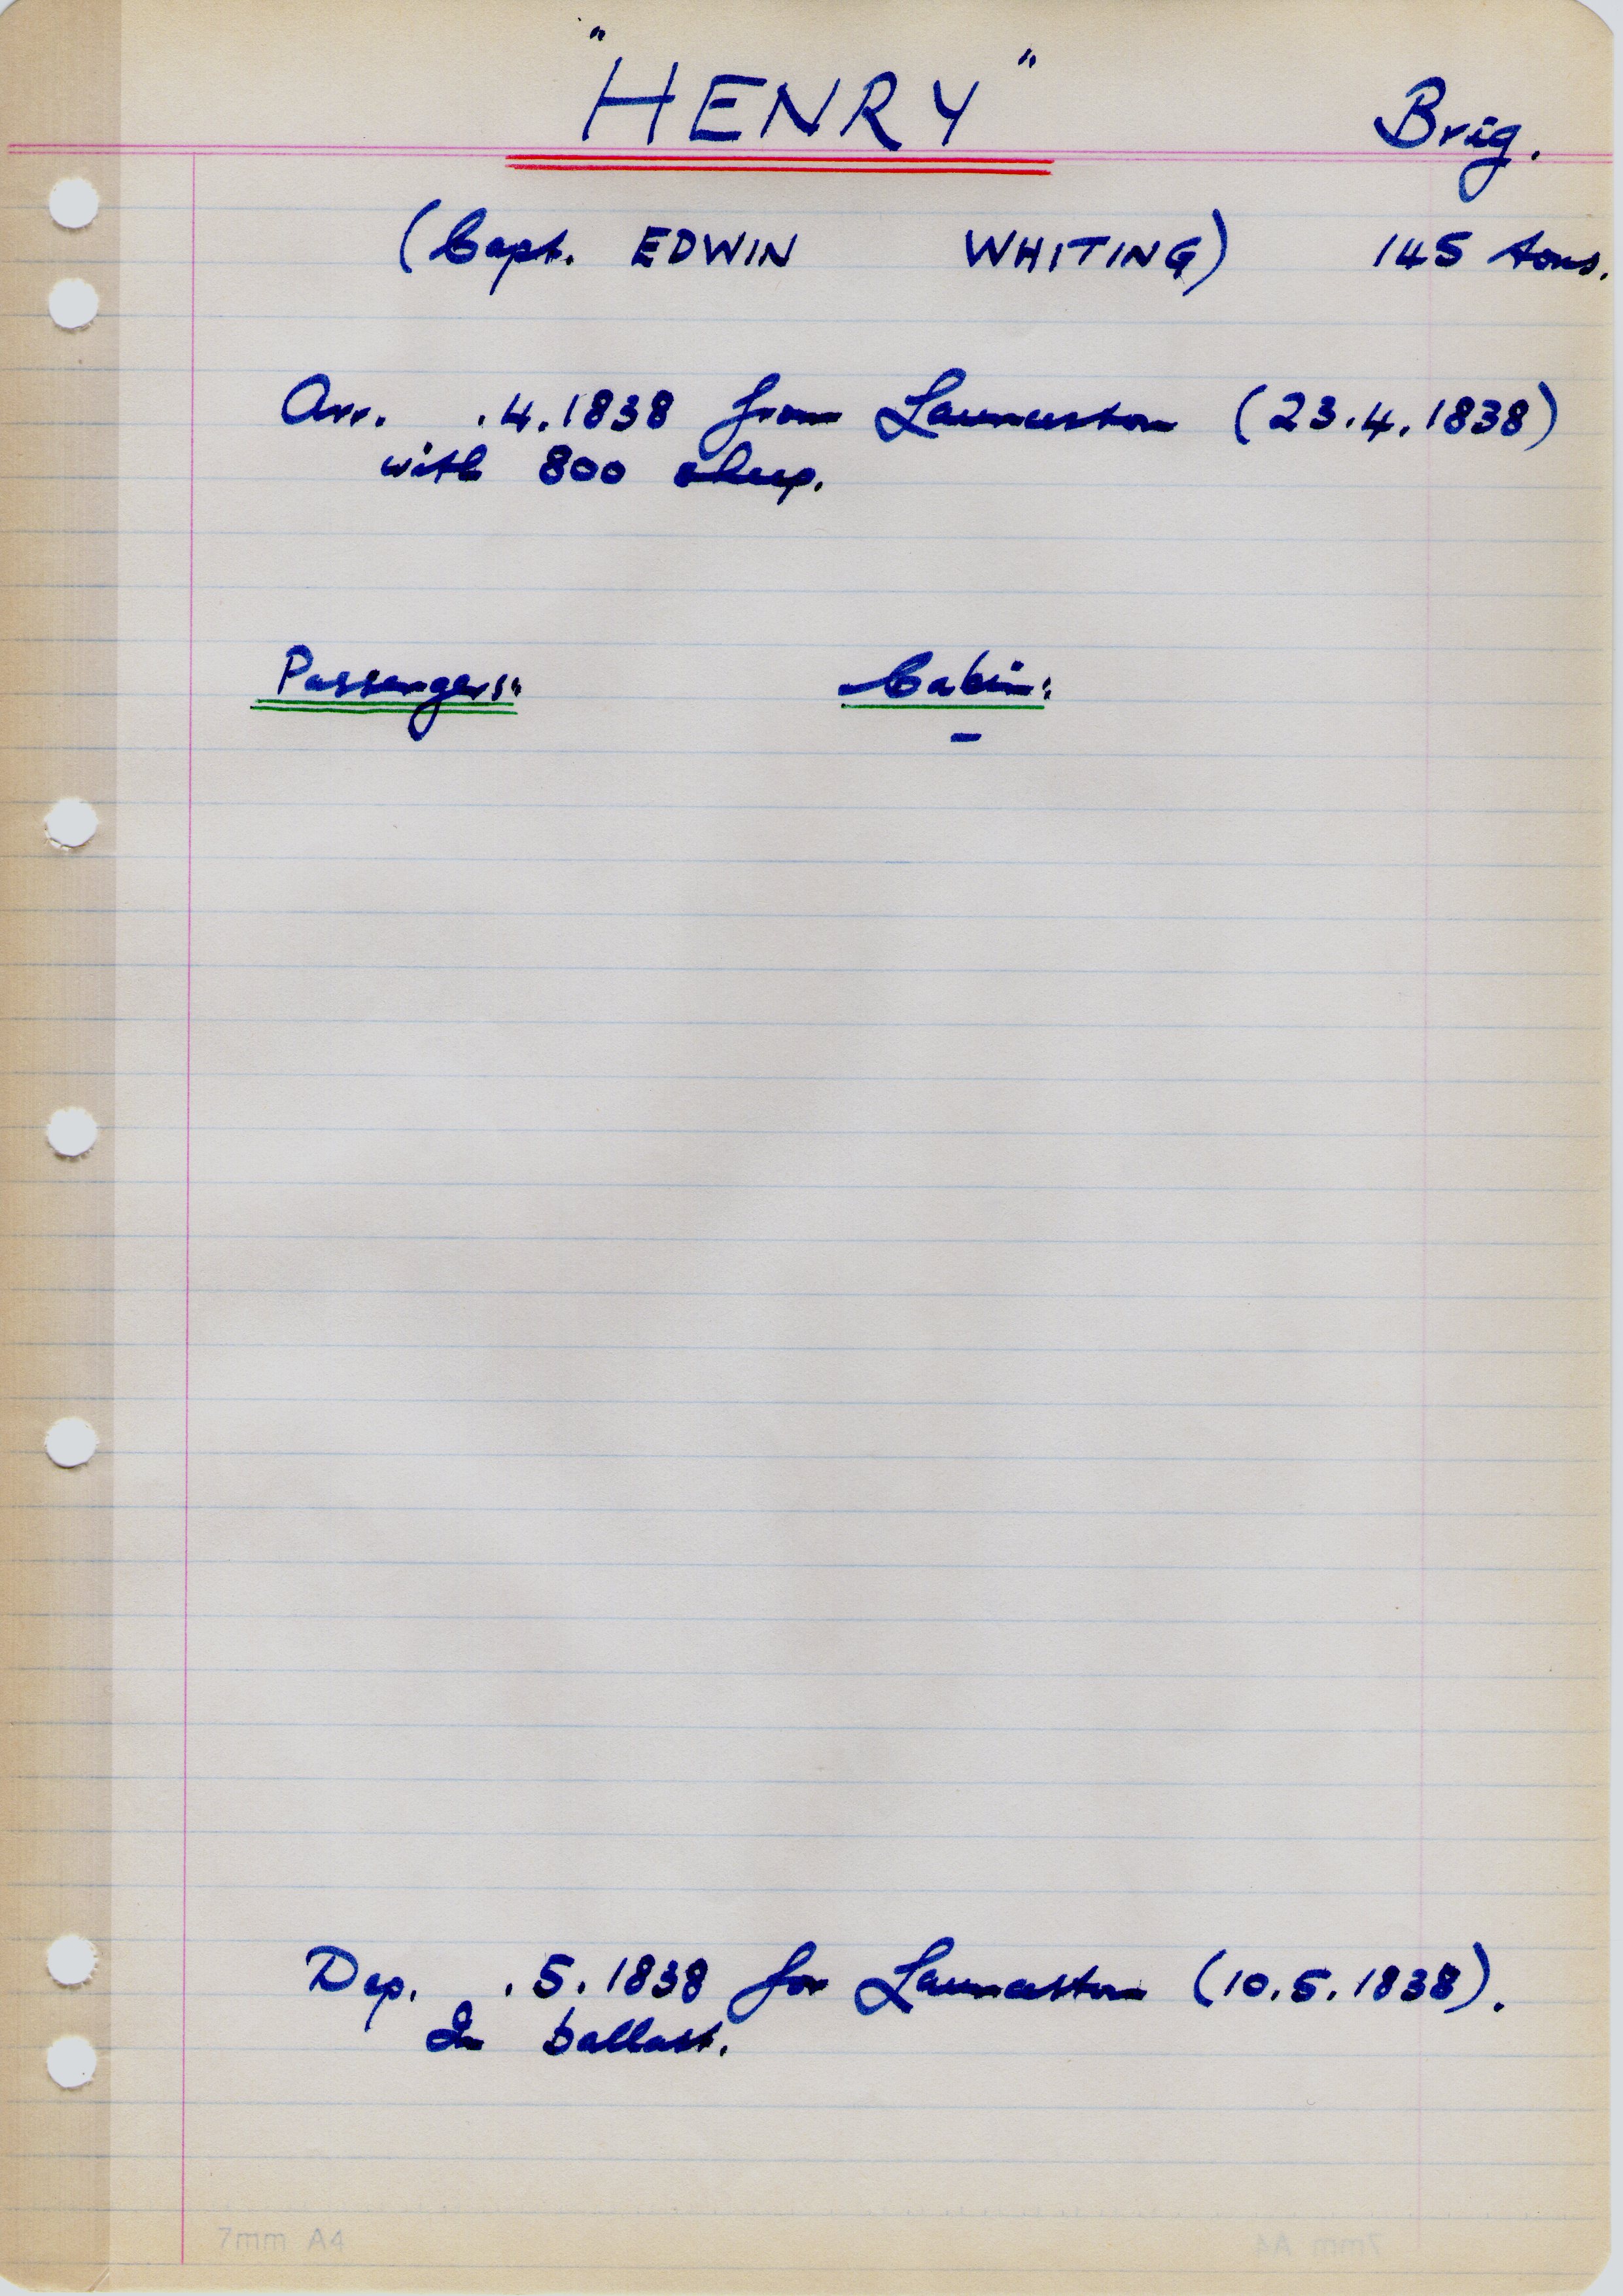 "HENRY" Brig.
(Capt. EDWIN WHITING) 145 tons.
Arr. .4.1838 from Launceston (23.4.1838)
with 800 sheep.
Passengers: Cabin:
-
Dep. .5.1838 for Launceston (10.5.1838).
In ballast.
7mm A4